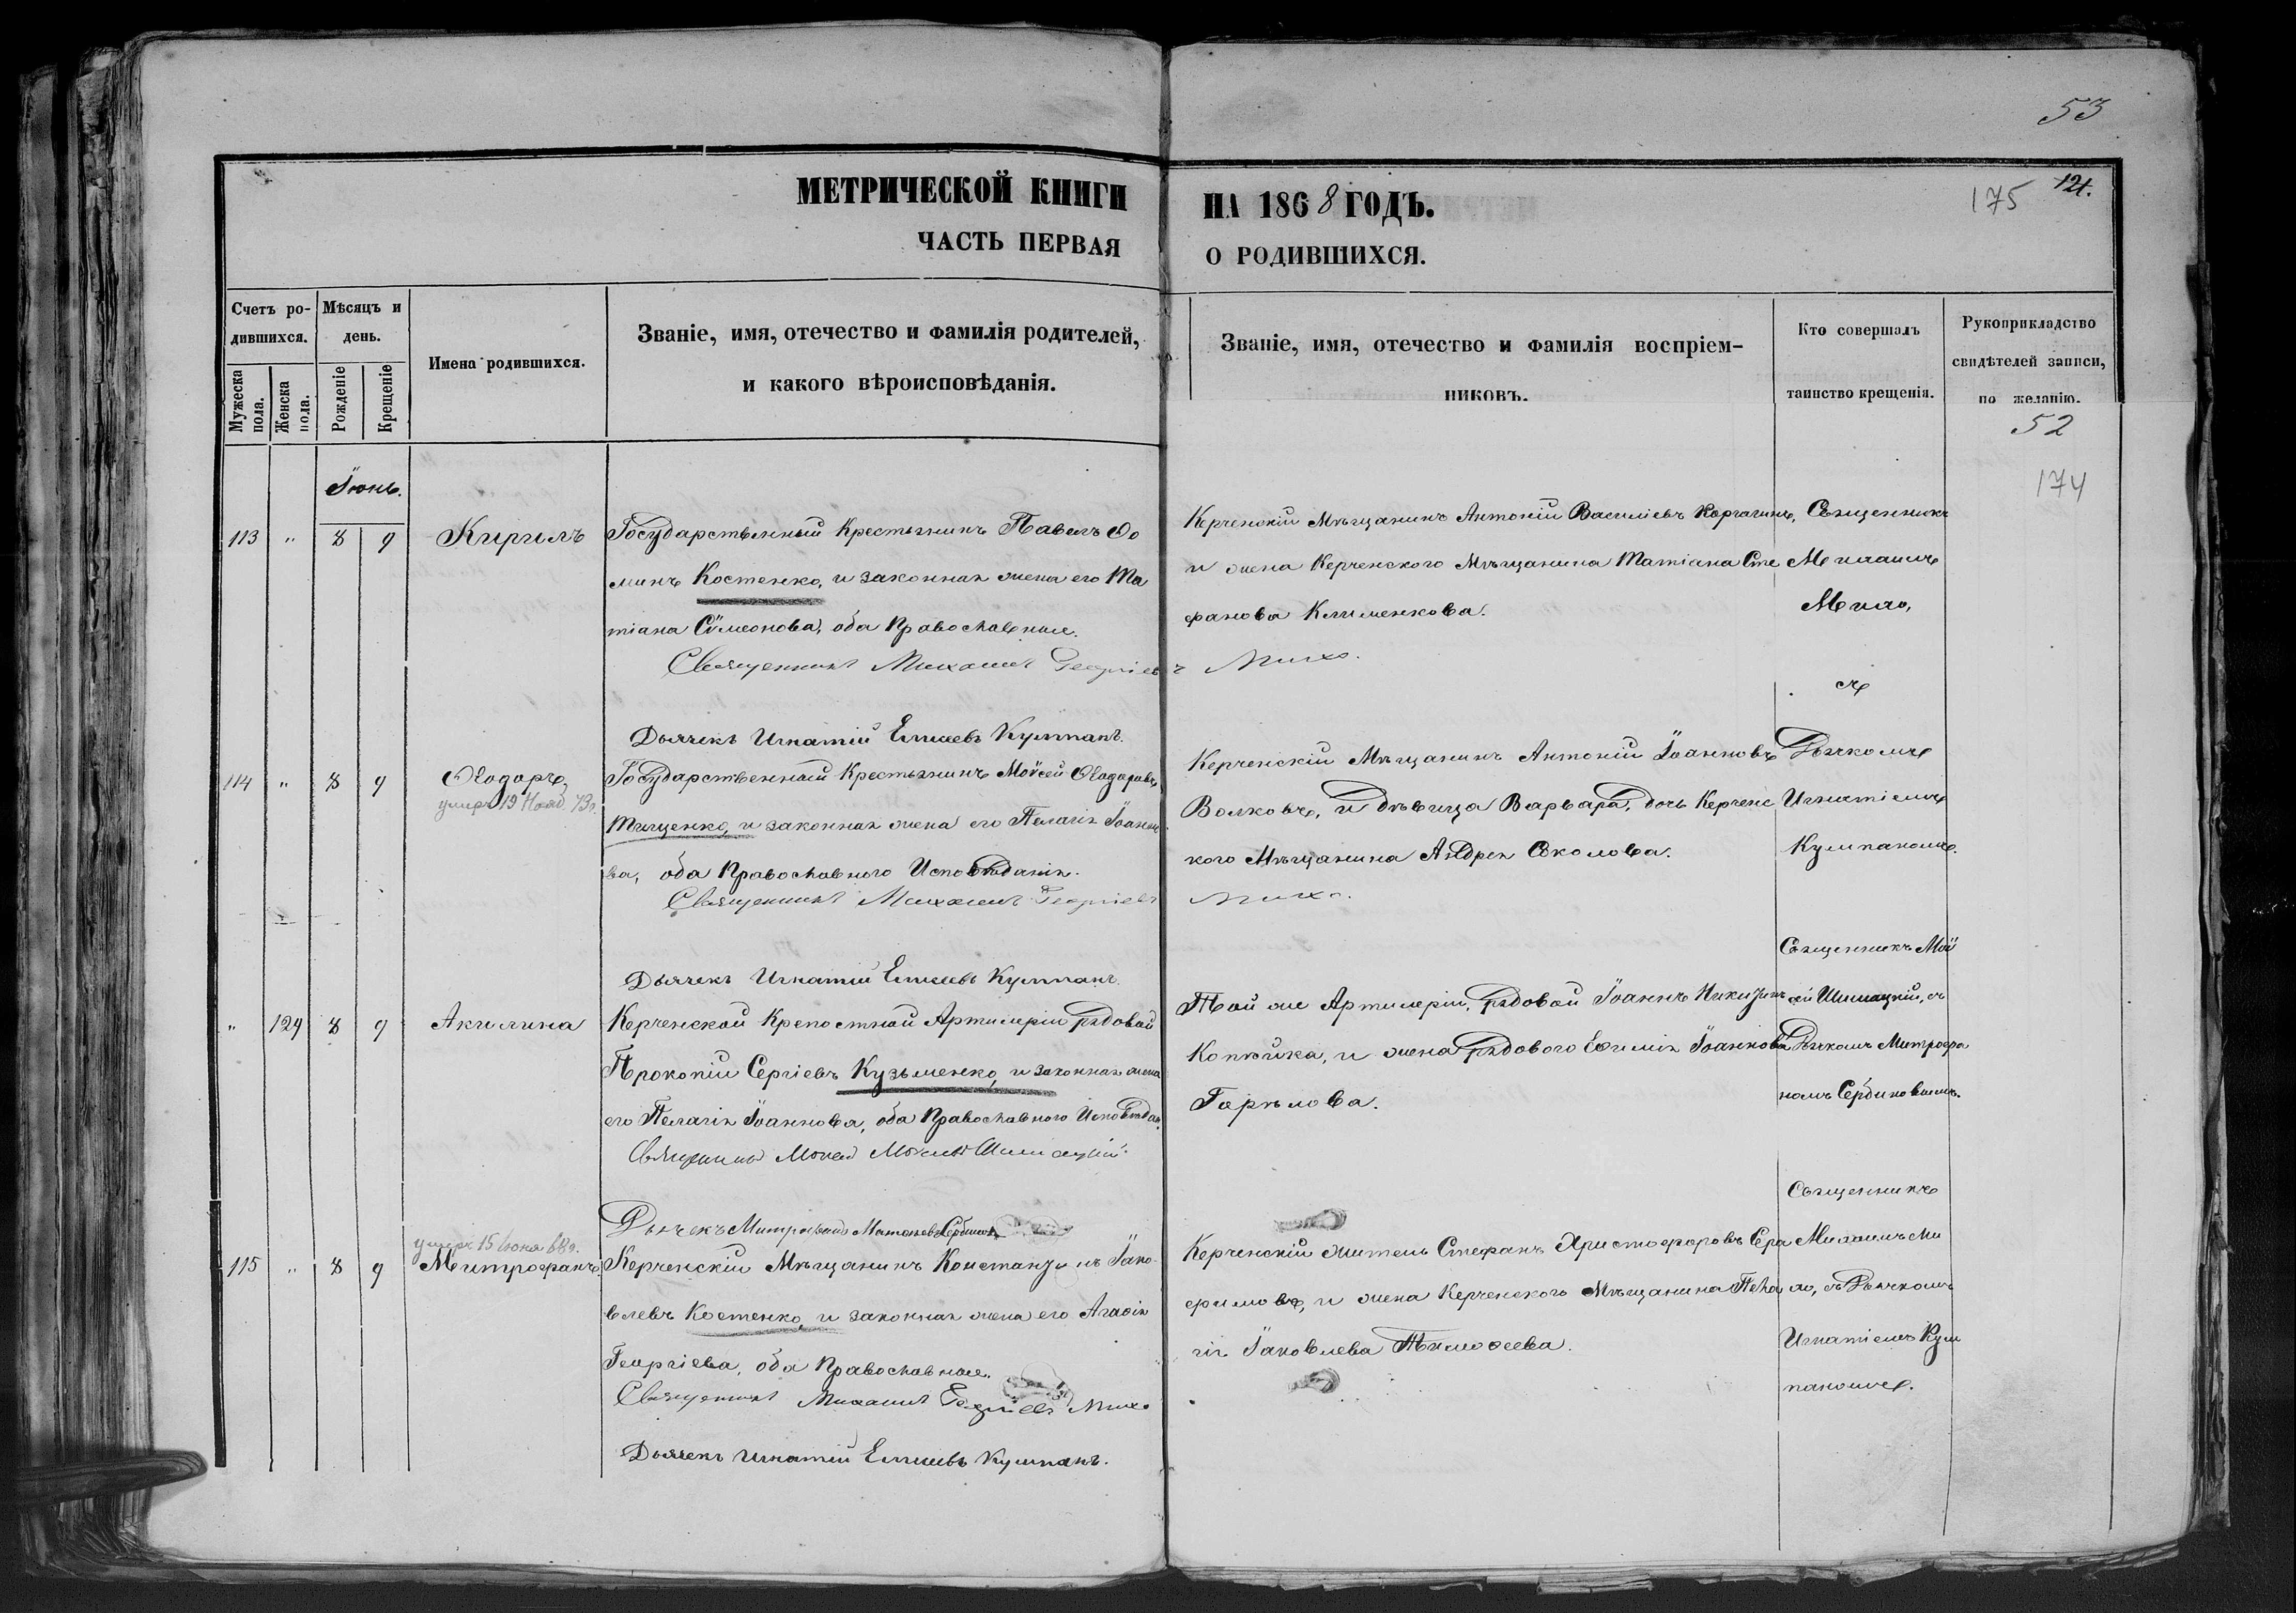 53
МЕТРИЧЕСКОЙ КНИГИ НА 1868 ГОДЪ.
175 121.
ЧАСТЬ ПЕРВАЯ О РОДИВШИХСЯ.
Счетъ ро-
дившихся.
Мужеска пола.
Женска пола.
Мѣсяцъ и
день.
Рожденіе
Крещеніе
Имена родившихся.
Званіе, имя, отечество и фамилія родителей,
и какого вѣроисповѣданія.
Званіе, имя, отечество и фамилія воспріем-
никовъ.
Кто совершалъ
таинство крещенія.
Рукоприкладство
свидѣтелей записи,
по желанію.
52
174
Іюнь.
113 " 8 9 Кирилъ
Государственный Крестьянинъ Павелъ Ѳо
минъ Костенко, и законная жена его Та
тіана Сѷмеонова, оба Православные.
Священникъ Михаилъ Георгіевъ Михо.
Дьячекъ Игнатій Елисеевъ Кулпанъ.
Керченскій Мѣщанинъ Антоній Василіевъ Карагинъ,
и жена Керченского Мѣщанина Татіана Сте
фанова Клименкова.
Священникъ
Михаилъ
Михо,
съ
114 " 8 9 Ѳеодоръ,
умеръ 19 Нояб. 73г.
Государственный Крестьянинъ Моѷсей Ѳеодоровъ
Тищенко, и законная жена его Пелагія Іоанно
ва, оба Православного Исповѣданія.
Священникъ Михаилъ Георгіевъ Михо.
Дьячекъ Игнатій Елисеевъ Кулпанъ.
Керченскій Мѣщанинъ Антоній Іоанновъ
Волковъ, и дѣвица Варвара, дочь Керченс
кого Мѣщанина Андрея Соколова.
Дьячкомъ
Игнатіемъ
Кулпаномъ.
" 124 8 9 Акилина
Керченской Крепостной Артилеріи рядовой
Прокопій Сергіевъ Кузьменко, и законная жена
его Пелагія Іоаннова, оба Православного Исповѣдан.
Священникъ Моѷсей Шимацкій.
Дьячекъ Митрофанъ Сербиновъ
Той же Артилеріи, рядовой Іоаннъ Никитинъ
Копѣйка, и жена рядового Евфимія Іоаннова
Горѣлова.
Священникъ Моѷ
сей Шимацкій, съ
Дьячкомъ Митрофа
номъ Сербиновымъ.
умеръ 15 Іюня 68г.
115 " 8 9 Митрофанъ.
Керченскій Мѣщанинъ Константинъ Іако
влевъ Костенко, и законная жена его Агафія
Георгіева, оба Православные.
Священникъ Михаилъ Георгіевъ Михо
Дьячекъ Игнатій Елисеевъ Кулпанъ.
Керченскій житель Стефанъ Христофоровъ Сера
фимовъ, и жена Керченского Мѣщанина Пела
гія Іаковлева Тимоѳеева.
Священникъ
Михаилъ Ми
хо, съ Дьячкомъ
Игнатіемъ Кул
паномъ.